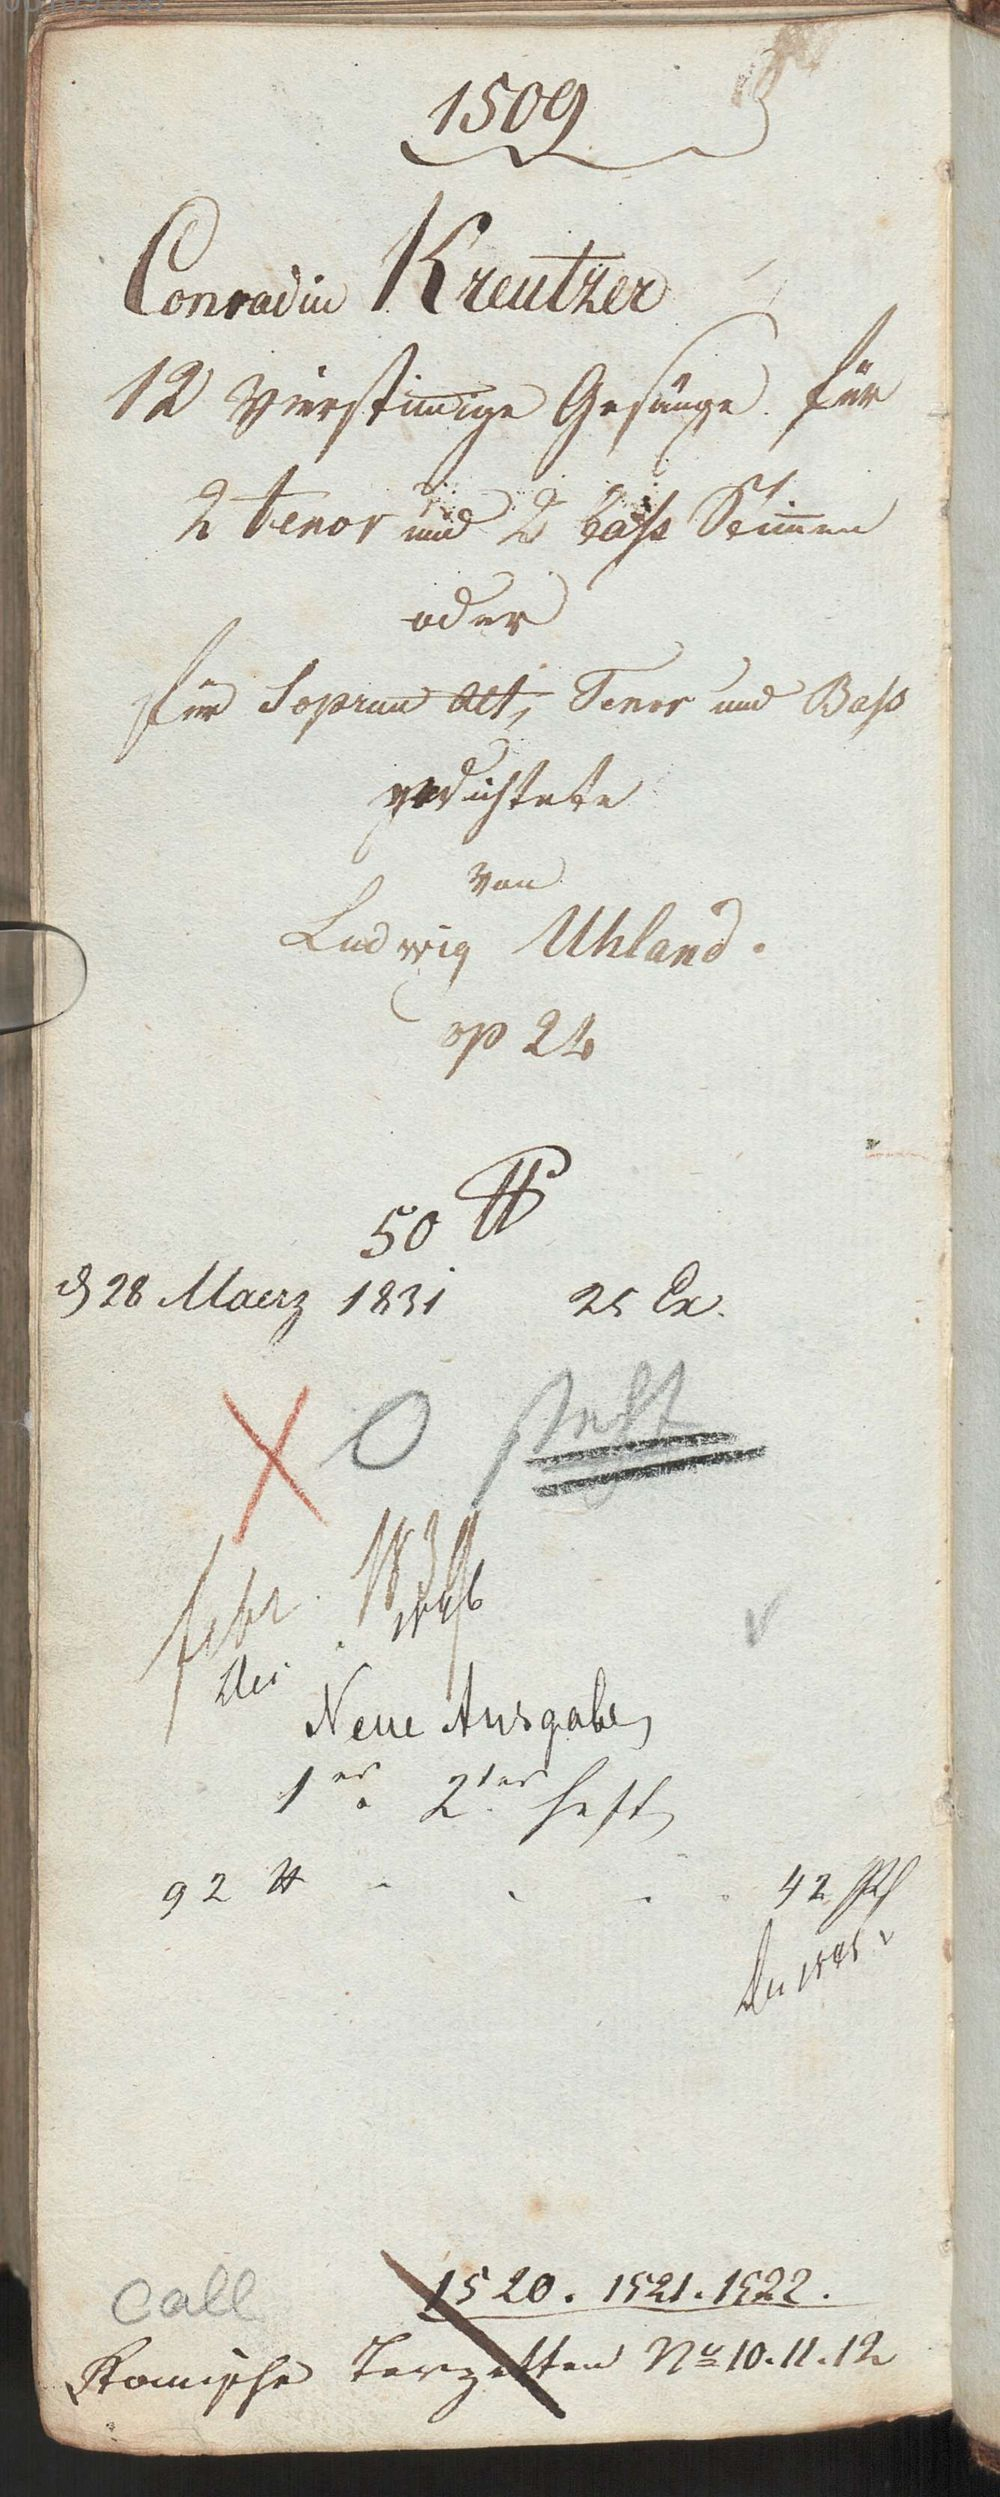 1509
Conradin Kreutzer
12 Vierstimige Gesänge für
2 Tenor und 2 Bass Stimmen
oder
für Sopran Alt, Tenor und Bass
gedichtete
von
Ludwig Uhland.
op 24
50 ₶
d 28 Maerz 1831 25 Ex.
X O steht
febr. 1839
1846
Neue Ausgabe
1er. 2ter Heft
92 ₶ 42 Pl
1845
Call
1520. 1521. 1522.
Komische Terzetten No 10. 11. 12